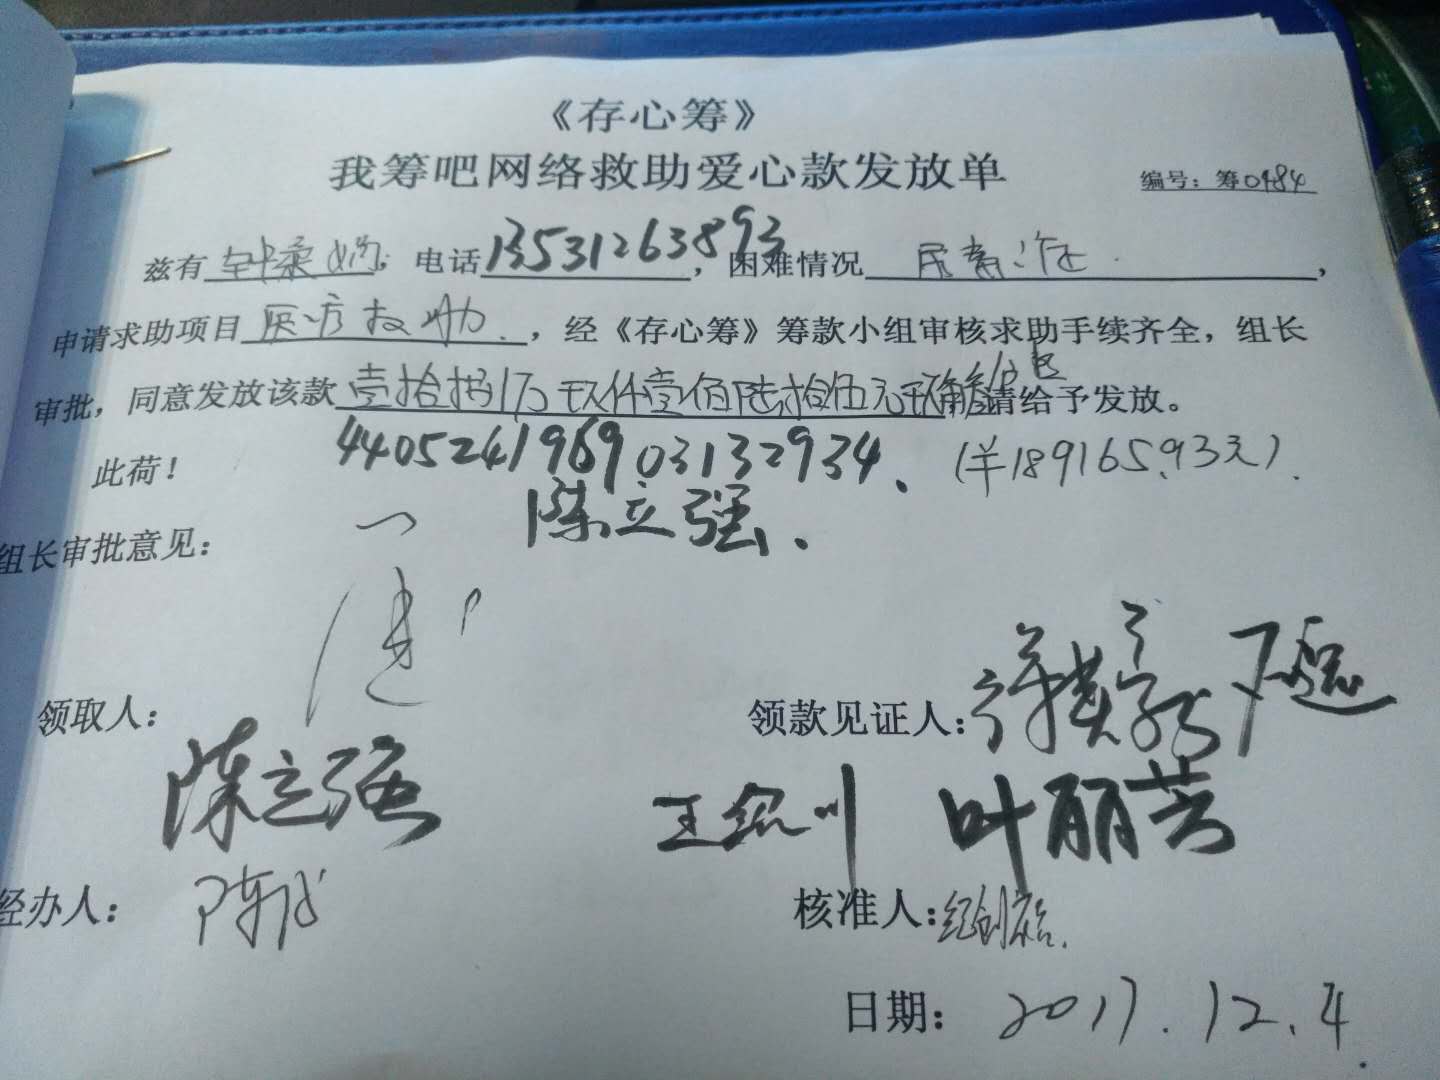 《存心筹》
我筹吧网络救助爱心款发放单
编号：筹0484
兹有钟柔 ；电话13531263893，困难情况 尿毒症 ，
申请求助项目 医疗救助 ，经《存心筹》筹款小组审核求助手续齐全，组长
审批，同意发放该款壹拾捌万玖仟壹佰陆拾伍元玖角叁分 请给予发放。
此荷！
440524196903132934. (￥189165.93元).
陈立强.
组长审批意见：
领取人：
领款见证人：
陈立强
王 川 叶丽芳
经办人：
核准人：
日期： 2017.12.4